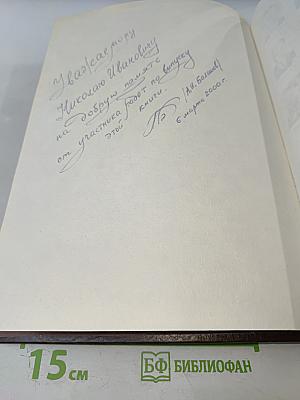 Уважаемому
Николаю Ивановичу
на добрую память
от участника работ по выпуску
этой книги.
6 марта 2000 г.
15 см
БФ БИБЛИОФАН